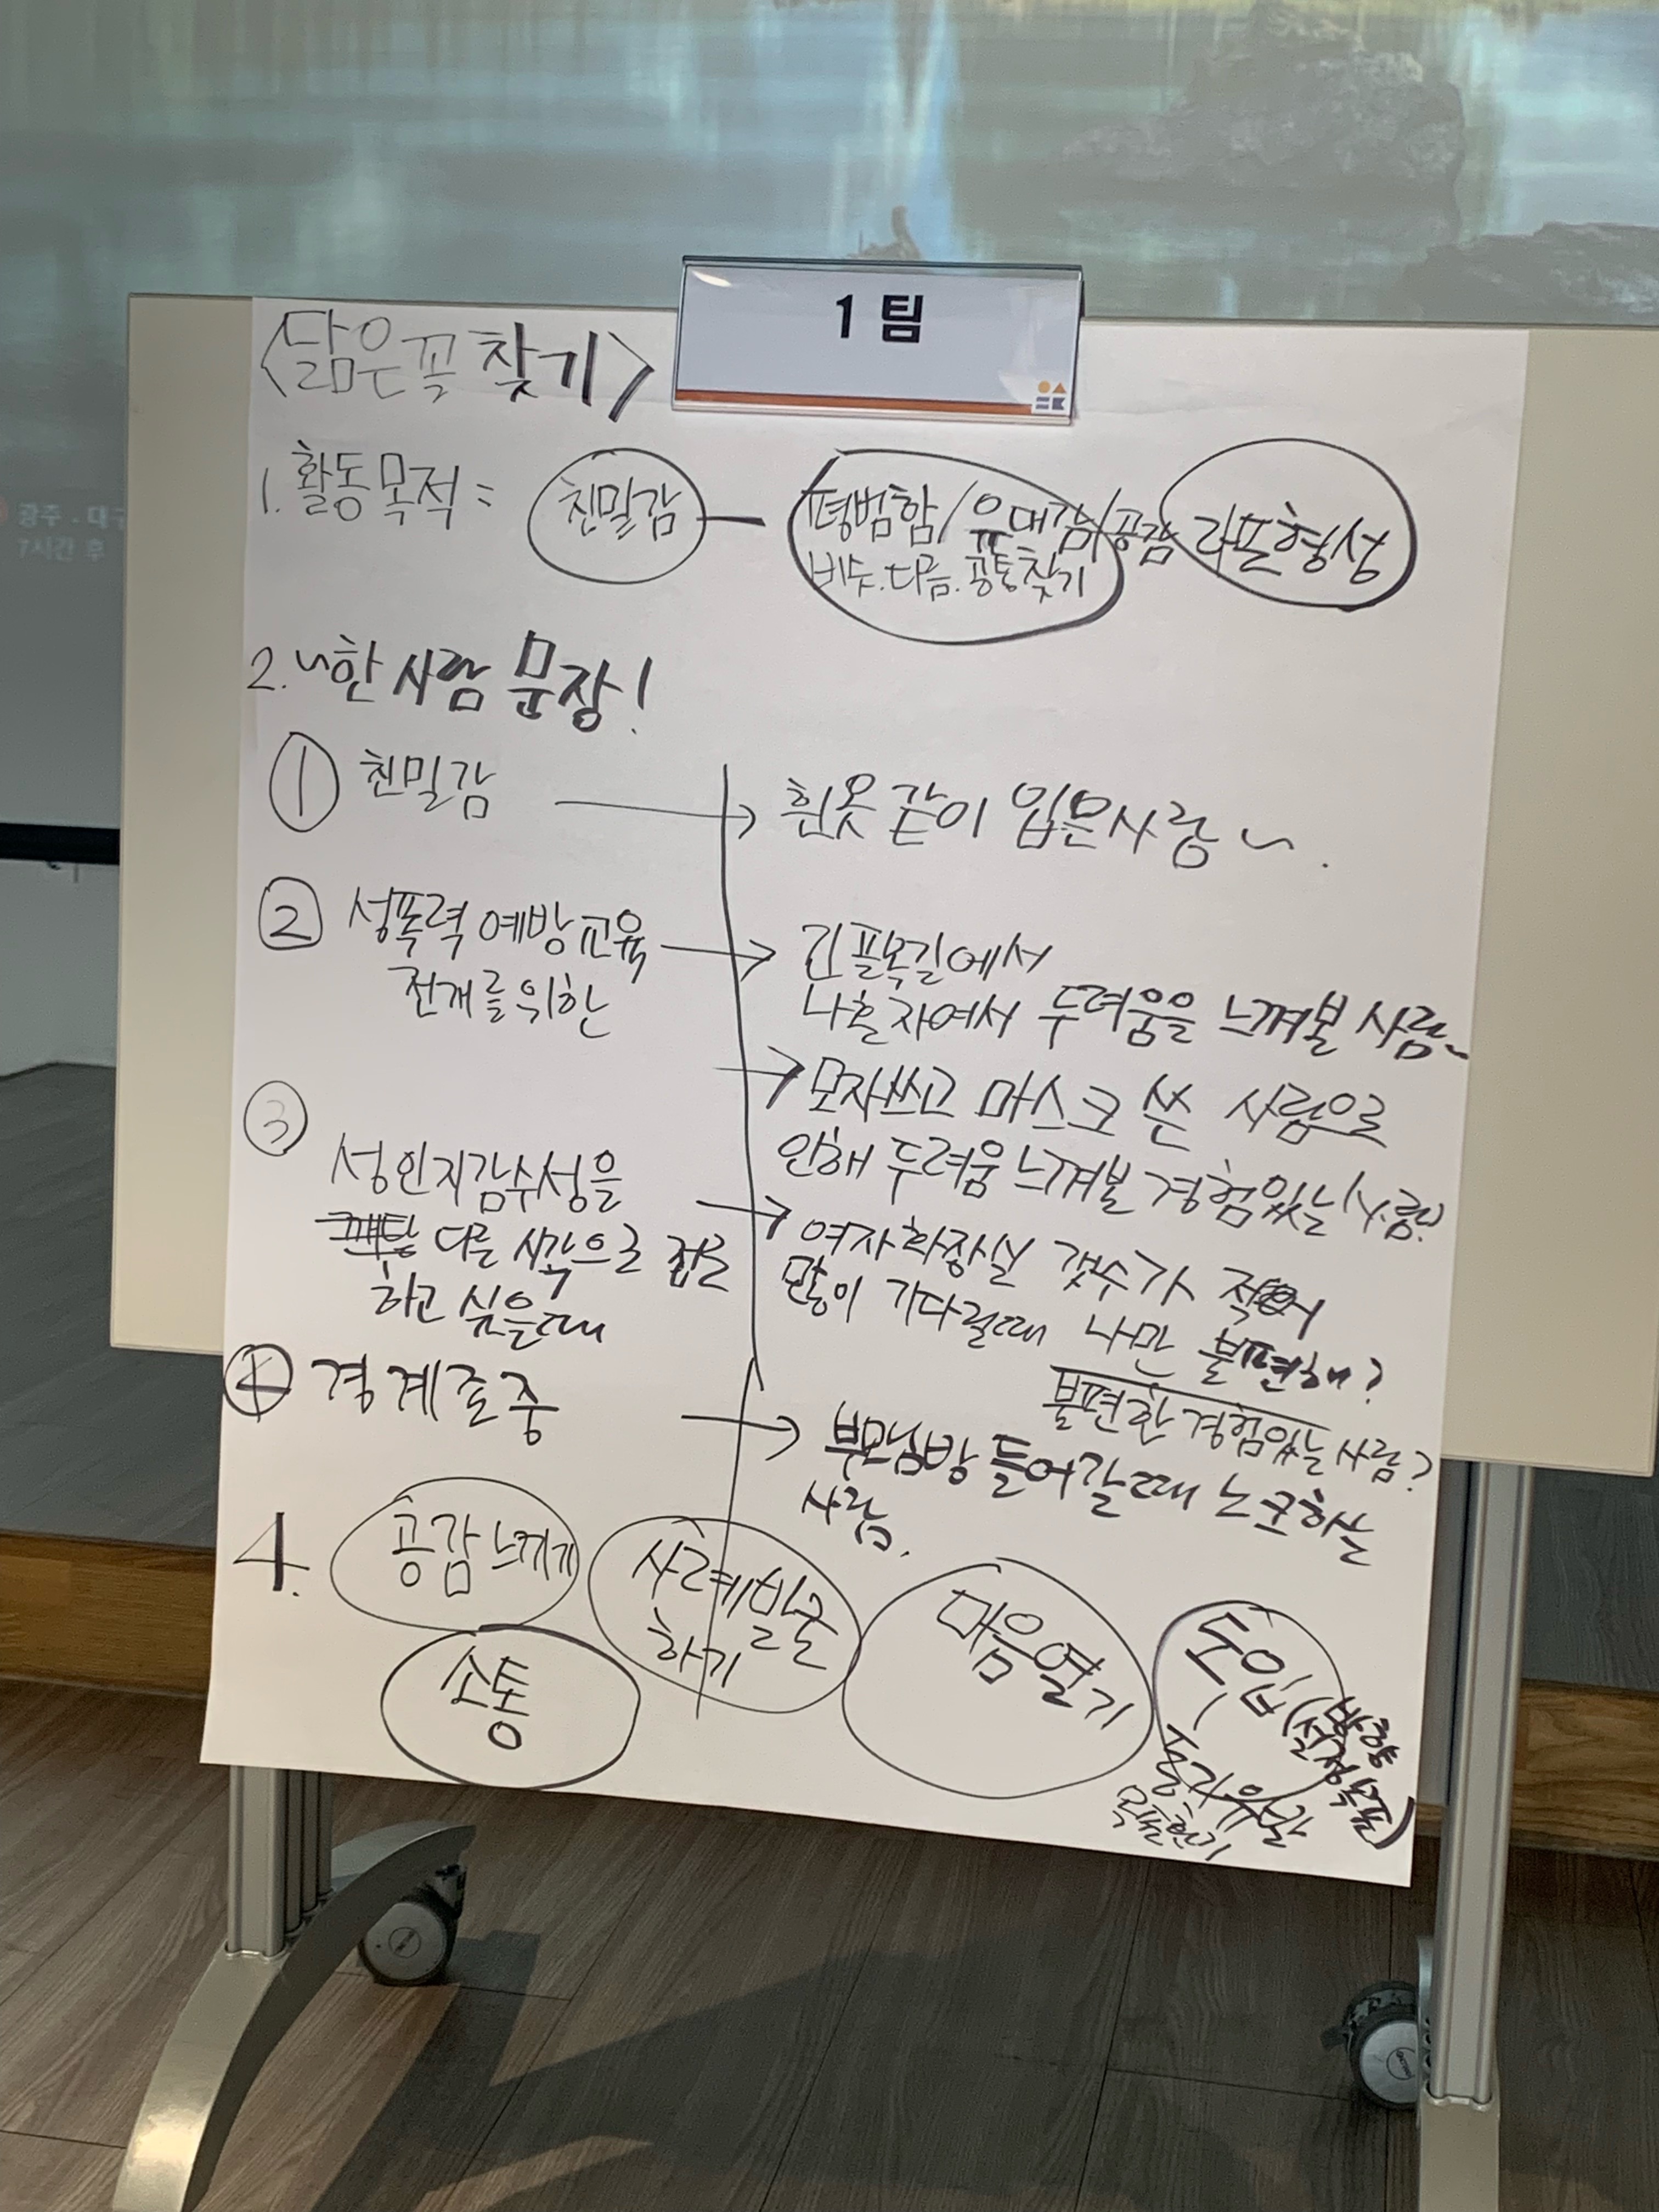 1 팀
<닮은꼴 찾기>
1. 활동목적 : 친밀감 - 평범함/유대감/공감 라포형성
비슷.다름.공통찾기
2. ~한 사람 문장!
① 친밀감 → 흰옷 같이 입은사람 ~.
② 성폭력 예방교육 → 긴 골목길에서
전개를위한
나혼자여서 두려움을 느껴본 사람~
→ 모자쓰고 마스크 쓴 사람으로
인해 두려움 느껴본 경험있는 사람?
③
성인지감수성을
다른 시각으로 접근
하고 싶을때
→ 여자화장실 갯수가 적어
많이 기다릴때 나만 불편해?
불편한 경험있는 사람?
④ 경계존중 → 부모님방 들어갈때 노크하는
사람.
4. 공감 느끼기
사례발굴
하기
마음열기
도입 (방향
설정
소통
광주 - 대구
7시간 후